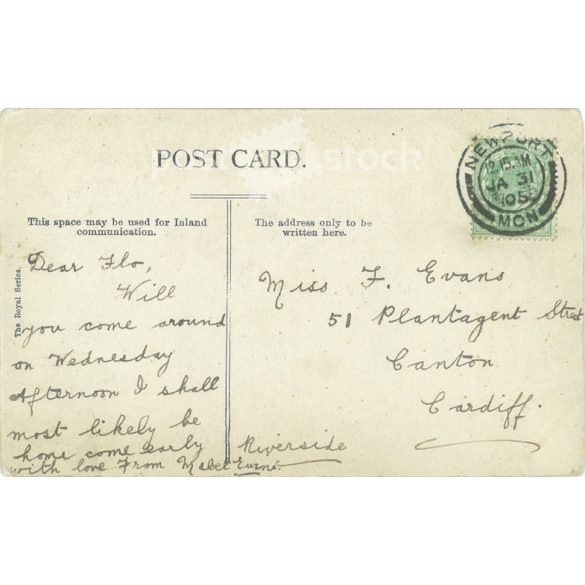 POST CARD.
This space may be used for Inland
communication.
The address only to be
written here.
The Royal Series.
NEWPORT
12.15AM
JA 31
05
MON
Dear Flo,
Will
you come around
on Wednesday
afternoon I shall
most likely be
home come early
with love From Mabel Evans.
Miss F. Evans
51 Plantagent Street
Canton
Cardiff.
Riverside
stock